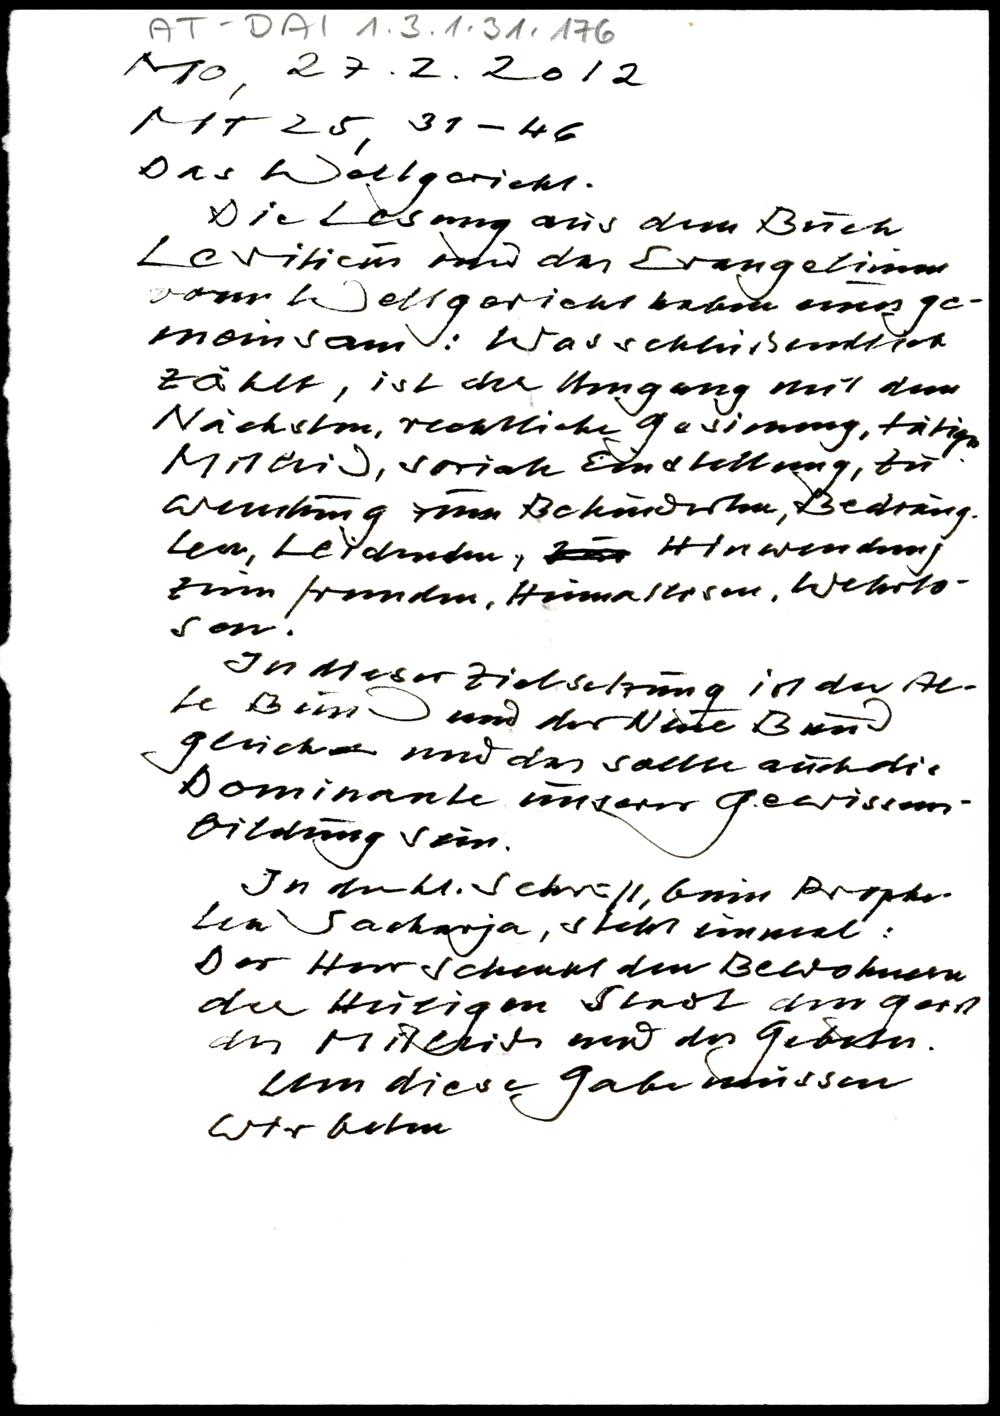 AT-DAI 1.3.1.31.176
Mo, 27.2.2012
Mt 25, 31-46
Das Weltgericht.
Die Lesung aus dem Buch
Leviticus und das Evangelium
vom Weltgericht haben eines ge-
meinsam: Was schließendlich
zählt, ist der Umgang mit dem
Nächsten, rechtliche Gesinnung, tätiges
Mitleid, soziale Einstellung, Zu
wendung zum Behinderten, Bedräng-
ten, Leidenden, Hinwendung
zum fremden, Heimatlosen, Wehrlo-
sen.
In dieser Zielsetzung ist der Al-
te Bund und der Neue Bund
gleich und das sollte auch die
Dominante unserer Gewissens-
bildung sein.
In der hl. Schrift, beim Prophe-
ten Sacharja, steht einmal:
Der Herr schenkt den Bewohnern
der Heiligen Stadt den Geist
des Mitleids und des Gebetes.
Um diese Gabe müssen
wir beten